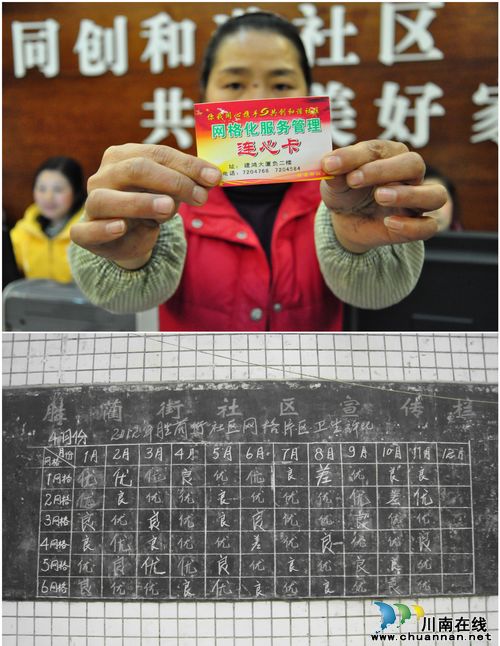 同创和谐社区
共 美好家
你我同心携手共创和谐社区
网格化服务管理
连心卡
址：建鸿大厦负二楼
电话：7204768 7204584
胜蔺街社区宣传栏
4月份 2012年胜蔺街社区网格片区卫生评比
月份 网格 1月 2月 3月 4月 5月 6月 7月 8月 9月 10月 11月 12月
1网格 优 优 优 良 优 优 良 差 优 良 良
2网格 优 良 优 优 良 优 优 优 优 差 优
3网格 良 优 良 优 良 良 优 优 良 优 优
4网格 良 优 良 优 优 差 优 良 优 优 良
5网格 优 良 优 优 良 优 良 优 良 良 优
6网格 良 优 优 良 优 良 优 良 优 良 优
川南在线
www.chuannan.net